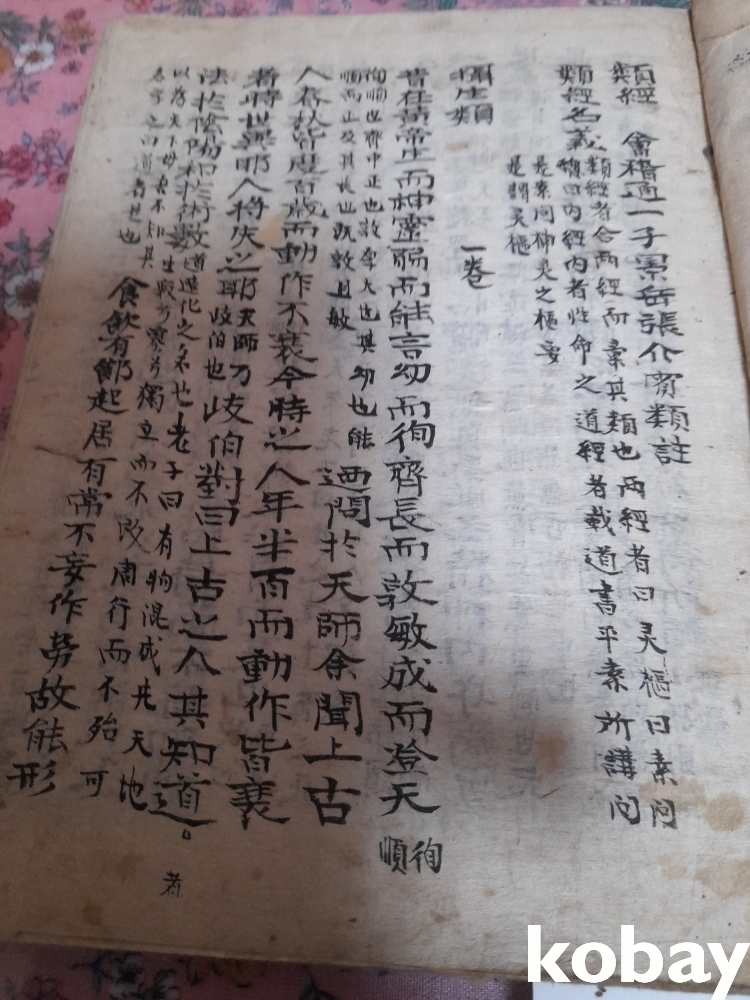 類經 會稽通一子景岳張介賓類註
類經名義 類經者合兩經而彙其類也兩經者曰灵樞曰素問
緫曰內經內者性命之道經者載道書平素所講問
是素問神灵之樞要
是謂灵樞
攝生類 一卷
昔在黃帝生而神靈弱而能言幼而徇齊長而敦敏成而登天 徇順
徇順也齊中正也敦厚大也其幼也能
順而正及其長也既敦且敏 廼問於天師余聞上古
人春秋皆度百歲而動作不衰今時之人年半百而動作皆衰
者時世異耶人將失之耶 天師乃
歧伯也 歧伯對曰上古之人其知道
法於陰陽和於術數 道造化之名也老子曰有物混成先天地 者
生寂兮寥兮獨立而不改周行而不殆可
以為天下母 吾不知其
名字之曰道者是也 食飲有節起居有常不妄作勞故能形
kobay